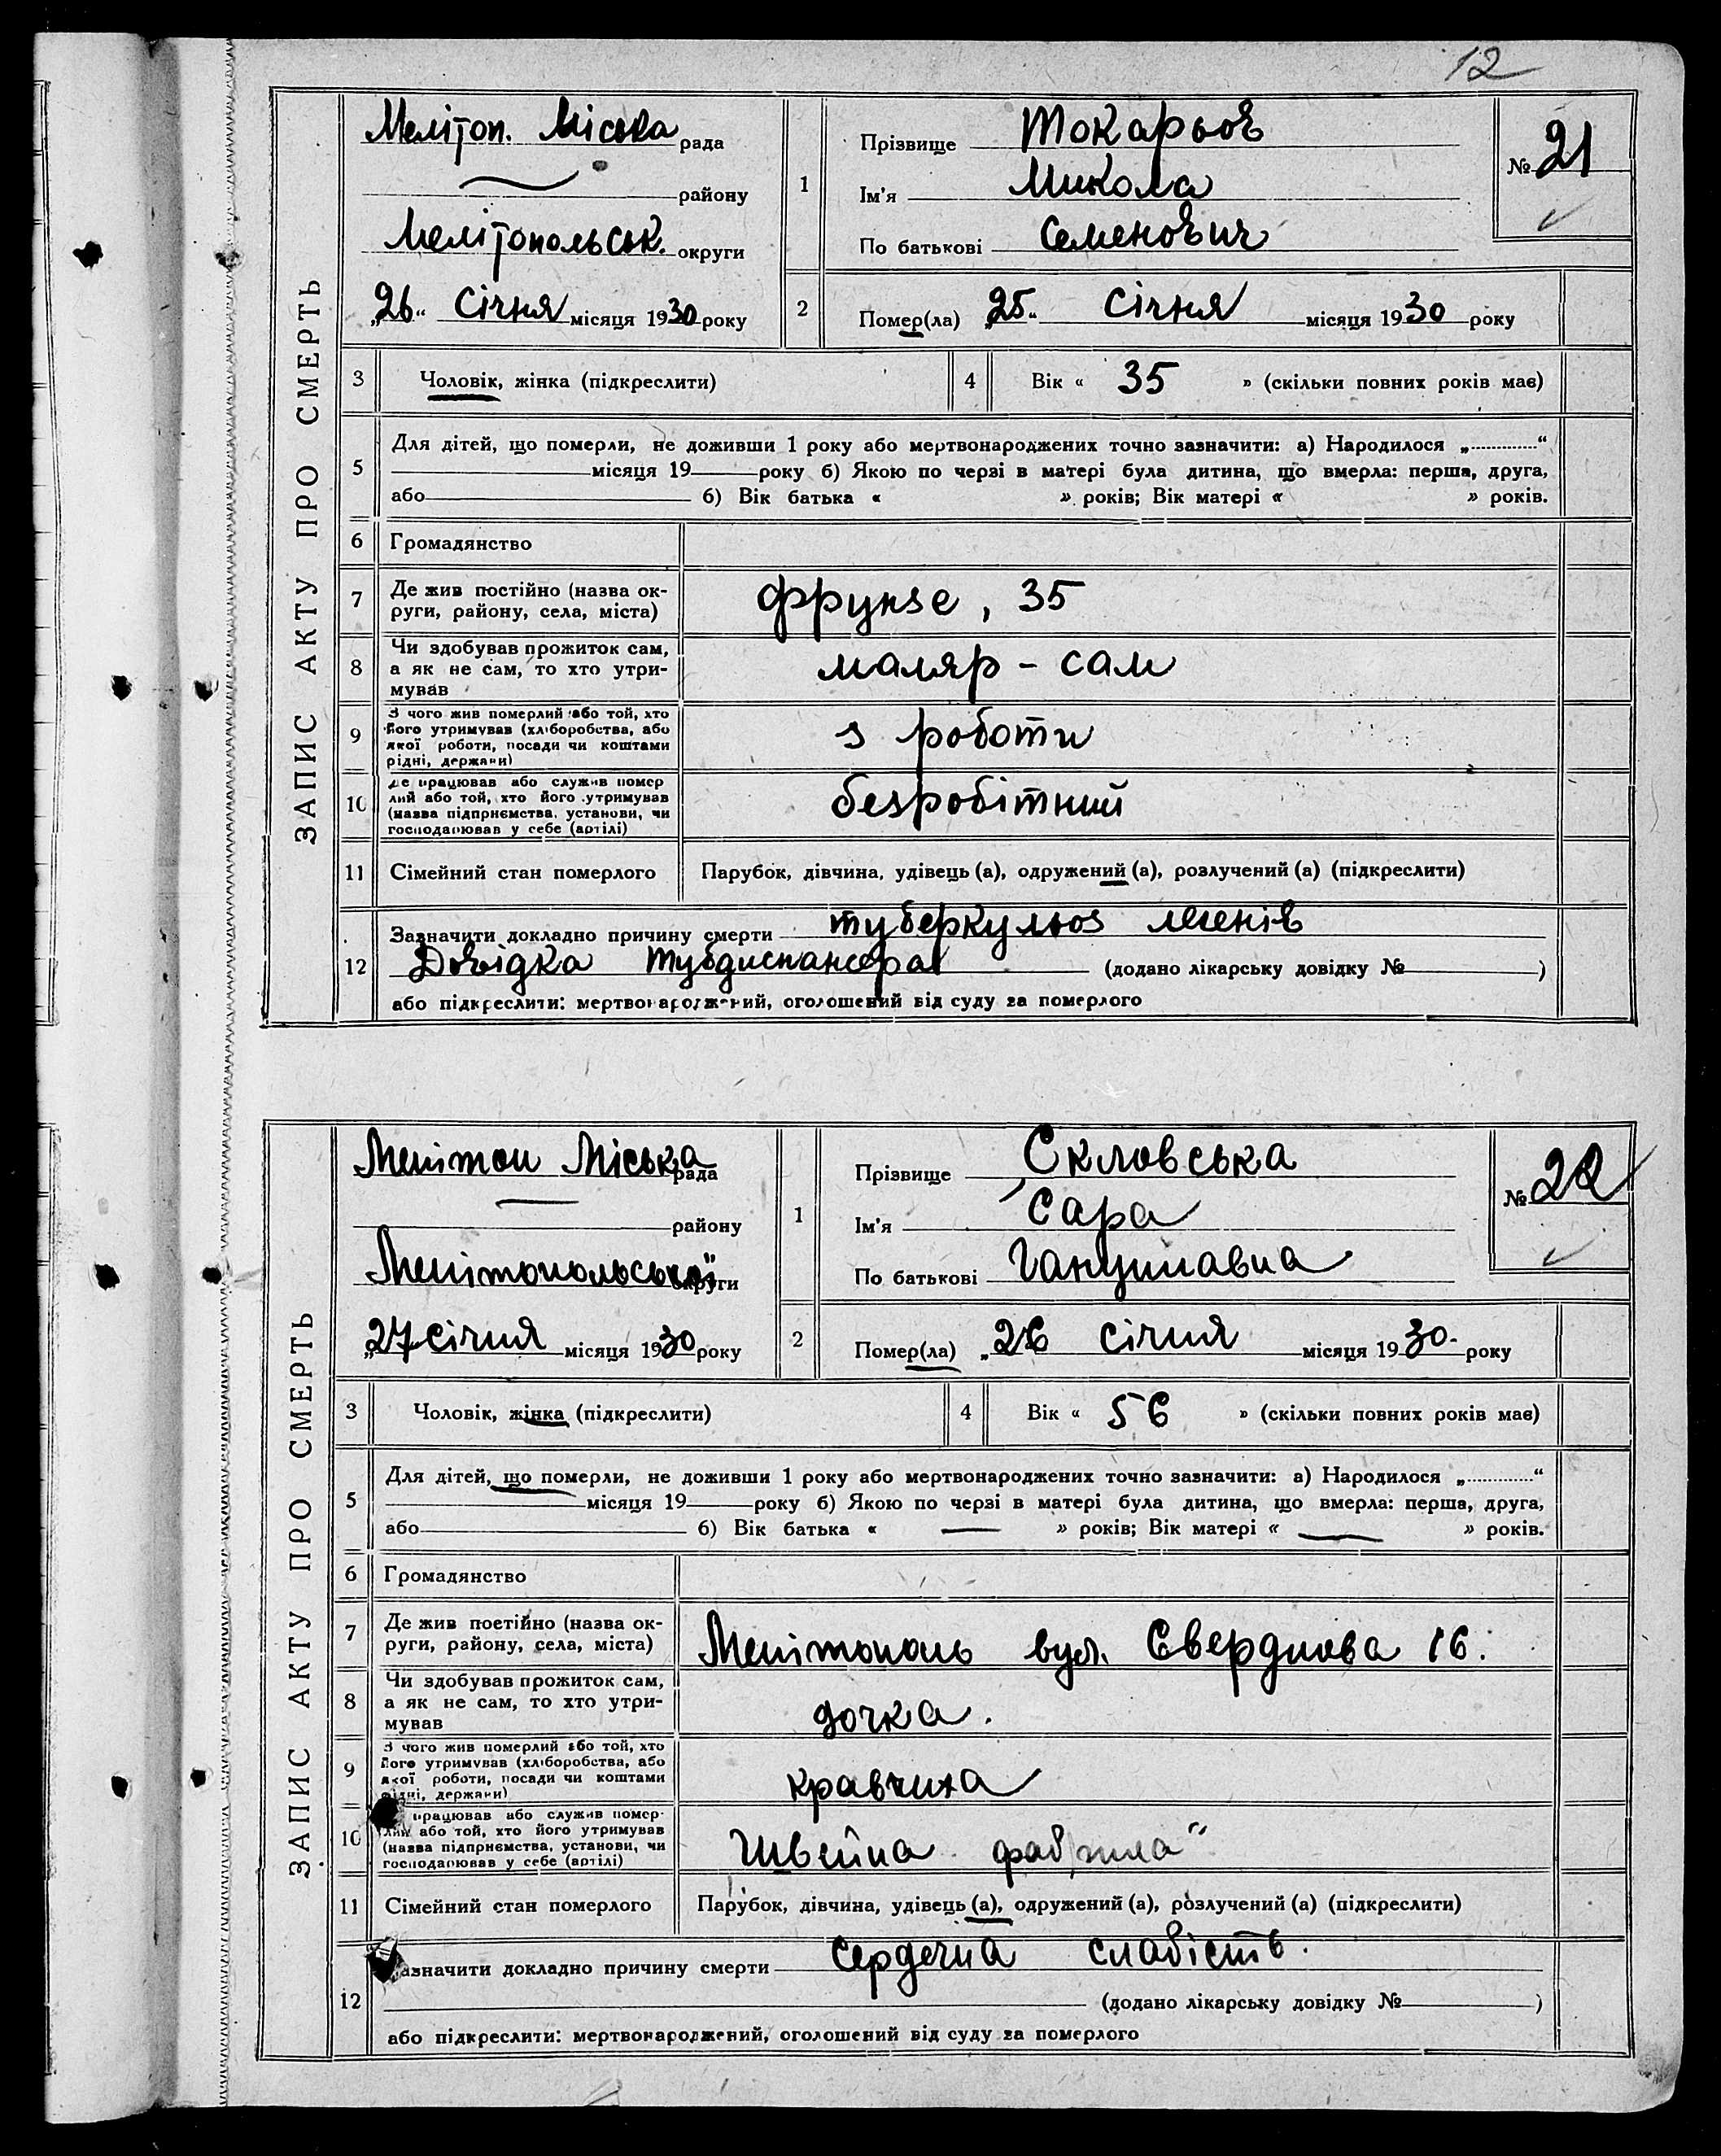 12
ЗАПИС АКТУ ПРО СМЕРТЬ
Мелітоп. Міська рада
району
Мелітопольськ. округи
„26“ Січня місяця 1930 року
1
Прізвище Токарьов
Ім'я Микола
По батькові Семенович
№ 21
2
Помер(ла) „25“ Січня місяця 1930 року
3 Чоловік, жінка (підкреслити)
4 Вік « 35 » (скільки повних років має)
5 Для дітей, що померли, не доживши 1 року або мертвонароджених точно зазначити: а) Народилося „ “
місяця 19 року б) Якою по черзі в матері була дитина, що вмерла: перша, друга,
або б) Вік батька « » років; Вік матері « » років.
6 Громадянство
7 Де жив постійно (назва ок-
руги, району, села, міста)
Фрунзе, 35
8 Чи здобував прожиток сам,
а як не сам, то хто утри-
мував
маляр - сам
9 З чого жив померлий або той, хто
його утримував (хліборобства, або
якої роботи, посади чи коштами
рідні, держави)
з роботи
10 Де працював або служив помер
лий або той, хто його утримував
(назва підприємства, установи, чи
господарював у себе (артілі)
безробітний
11 Сімейний стан померлого
Парубок, дівчина, удівець (а), одружений (а), розлучений (а) (підкреслити)
12 Зазначити докладно причину смерти туберкульоз легенів
Довідка Тубдиспансера (додано лікарську довідку № )
або підкреслити: мертвонароджений, оголошений від суду за померлого
ЗАПИС АКТУ ПРО СМЕРТЬ
Мелітоп Міська рада
району
Мелітопольської округи
„27 січня місяця 1930 року
1
Прізвище Скловська
Ім'я Сара
По батькові
№ 22
2
Помер(ла) „26 січня місяця 1930. року
3 Чоловік, жінка (підкреслити)
4 Вік « 56 » (скільки повних років має)
5 Для дітей, що померли, не доживши 1 року або мертвонароджених точно зазначити: а) Народилося „ “
місяця 19 року б) Якою по черзі в матері була дитина, що вмерла: перша, друга,
або б) Вік батька « — » років; Вік матері « — » років.
6 Громадянство
7 Де жив постійно (назва ок-
руги, району, села, міста)
Мелітополь вул. Свердлова 16.
8 Чи здобував прожиток сам,
а як не сам, то хто утри-
мував
дочка.
9 З чого жив померлий або той, хто
його утримував (хліборобства, або
якої роботи, посади чи коштами
рідні, держави)
кравчиха
10 працював або служив помер-
лий або той, хто його утримував
(назва підприємства, установи, чи
господарював у себе (артілі)
Швейна
11 Сімейний стан померлого
Парубок, дівчина, удівець (а), одружений (а), розлучений (а) (підкреслити)
12 Зазначити докладно причину смерти Сердечна слабість.
(додано лікарську довідку № )
або підкреслити: мертвонароджений, оголошений від суду за померлого